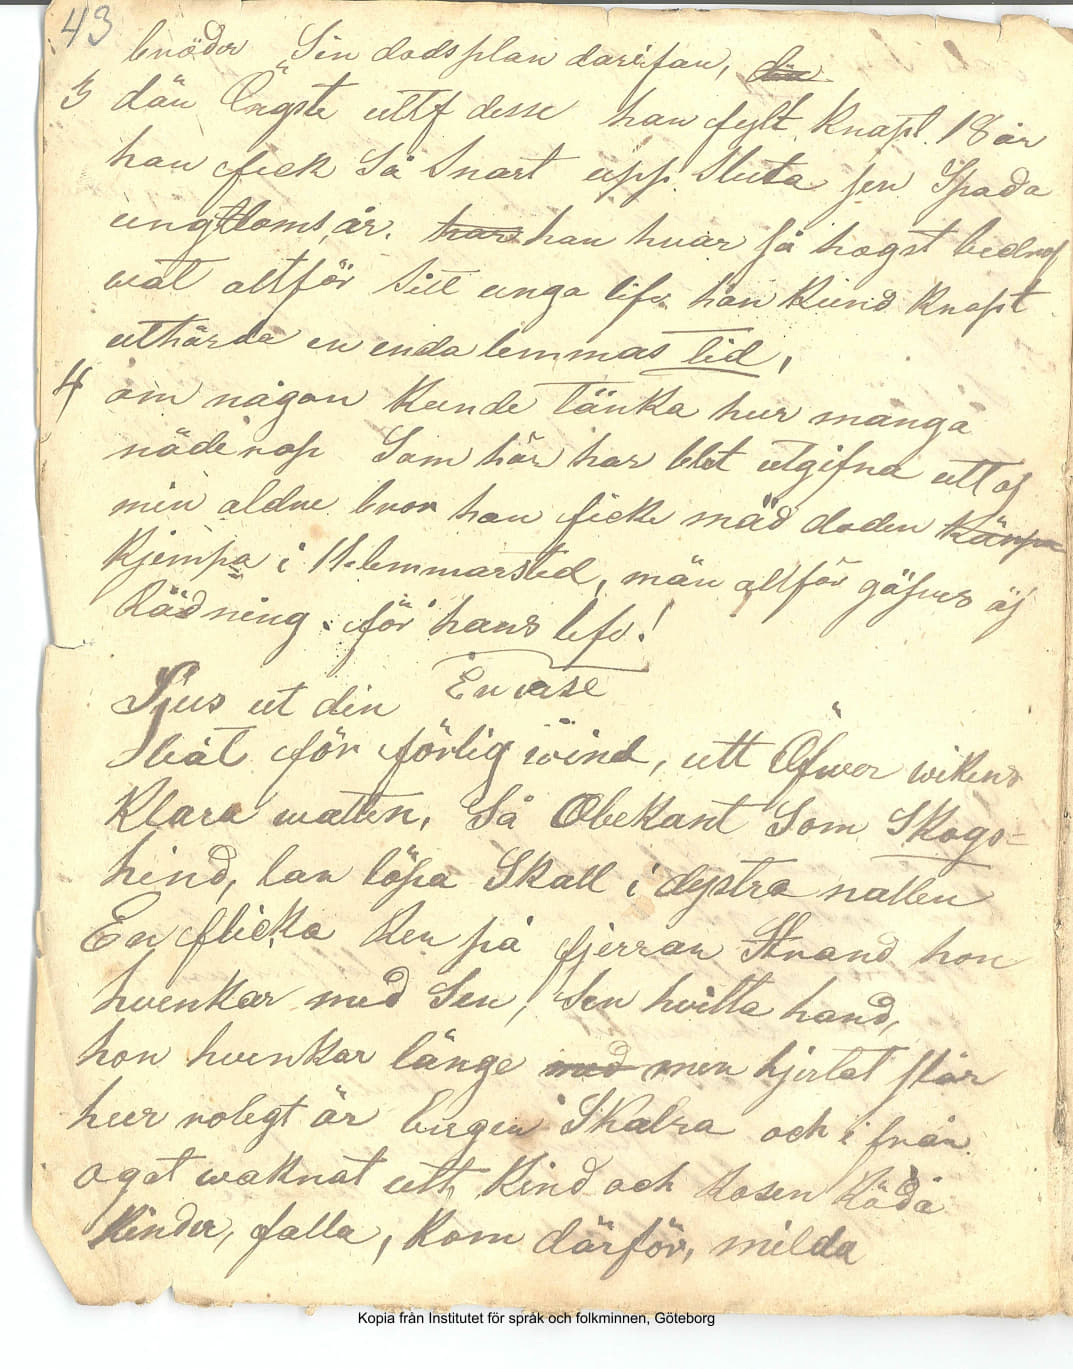 43
bröder Sin dödsplan darifan, dän
3 dän Öngste utf desse han fylt Knapt. 18 år
han fick Så Snart upp Sluta sen Spada
ungdoms,år. hans han hvar så högst bedröf
wat altför Sitt unga lif, han Kund Knapt
uthärda en enda temmas tid,
4 om någon Kunde Tänka hur många
nöde rop Som här har blet utgifna utt af
min aldre bror han ficke mäd döden Kämpa
Kjempa i 11-temmarstid, män altför gåfves äj
Rädning. för hans lif!
En vise
Sjus ut din
båt för förlig wind, utt Öfwer wikens
Klara watten, Så Obekant Som Skogs=
hind, lan löpa Skall i dystra natten
En flicka Ren på fjerran Strand hon
hvenkar med Sen, Sen hvitta hand,
hon hvenkar länge med men hjertat slår
hur rolegt är bergen Skalra och i från
ögat waknat utt Kind och Rosen Röda
Kinder, falla, Kom därför, milda
Kopia från Institutet för språk och folkminnen, Göteborg